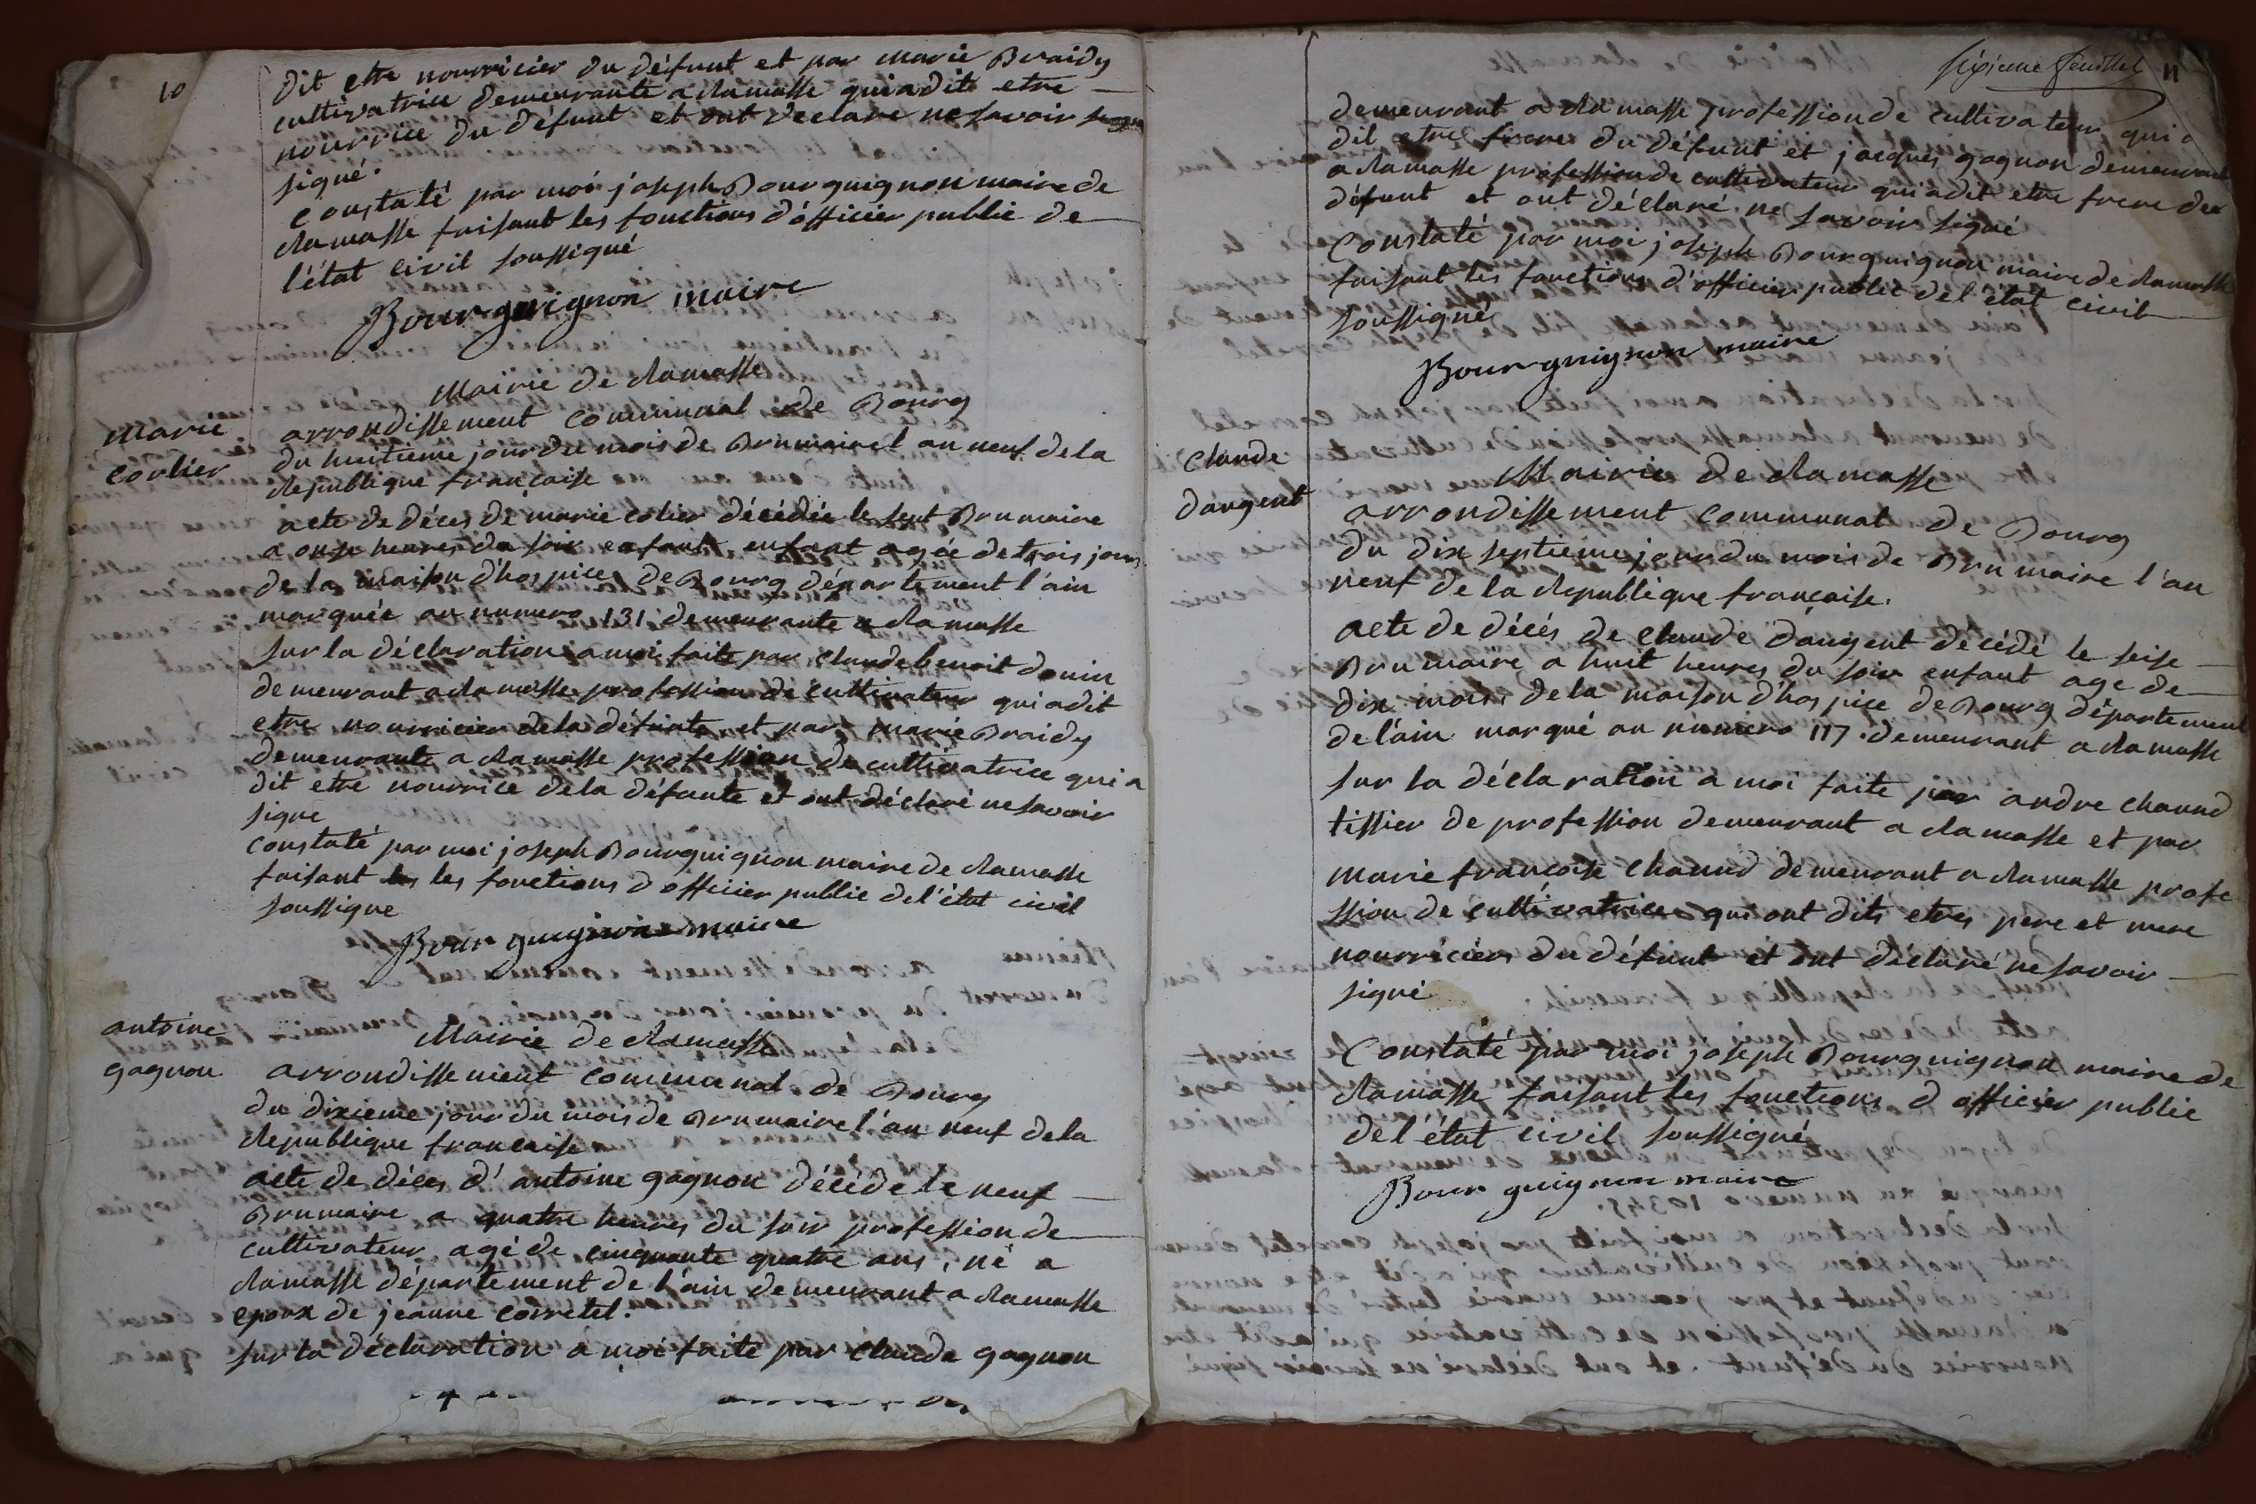 10
dit etre nourricier du défunt et par marie Braidy
cultivatrice demeurante a Ramasse qui a dit etre
nourrice du défunt et ont déclaré ne savoir
signé.
constaté par moi joseph Bourguignon maire de
Ramasse faisant les fonctions d'officier public de
l'état civil soussigné
Bourguignon maire
Marie
Corlier
Mairie de Ramasse
arrondissement communal de Bourg
du huitieme jour du mois de Brumaire l an neuf de la
Republique française
acte de déces de marie colier décédée le sept Brumaire
a onse heures du soir enfant enfant agée de trois jours
de la maison d'hospice de Bourg département l'ain
marquée au numero 131 demeurante a Ramasse
sur la déclaration a moi faite par claude benoit donin
demeurant a Ramasse profession de cultivateur qui a dit
etre nourricier de la défunte et par marie Braidy
demeurante a Ramasse profession de cultivatrice qui a
dit etre nourrice de la défunte et ont déclaré ne savoir
signe
constaté par moi joseph Bourguignon maire de Ramasse
faisant les les fonctions d officier public de l'état civil
soussigne
Bourguignon maire
antoine
gagnon
Mairie de Ramasse
arrondissement communal de Bourg
du dixieme jour du mois de Brumaire l'an neuf de la
Republique française
acte de déces d'antoine gagnon décédé le neuf
Brumaire a quatre heures du soir profession de
cultivateur agé de cinquante quatre ans, né a
Ramasse département de l'ain demeurant a Ramasse
epoux de jeanne corretel.
sur la déclaration a moi faite par claude gagnon
sixieme feuillet 11
demeurant a Ramasse profession de cultivateur qui a
dit etre frere du défunt et jacques gagnon demeurant
a Ramasse profession de cultivateur qui a dit etre frere de
défunt et ont déclaré ne savoir signé
Constaté par moi joseph Bourguignon maire de Ramasse
faisant les fonctions d'officier public de l'état civil
soussigné
Bourguignon maire
claude
dangent
Mairie de Ramasse
arrondissement communal de Bourg
du dix septieme jour du mois de Brumaire l'an
neuf de la Republique française.
acte de décés de claude dangent décédé le seise
Brumaire a huit heures du soir enfant age de
dix mois de la maison d'hospice de Bourg département
de l'ain marqué au numero 117. demeurant a Ramasse
sur la déclaration a moi faite par andre chanud
tissier de profession demeurant a Ramasse et par
marie françoise chanud demeurant a Ramasse profe
ssion de cultivatrice qui ont dits etres pere et mere
nourriciers du défunt et ont déclaré ne savoir
signé
Constaté par moi joseph Bourguignon maire de
Ramasse faisant les fonctions d officier public
de l'état civil soussigné
Bourguignon maire